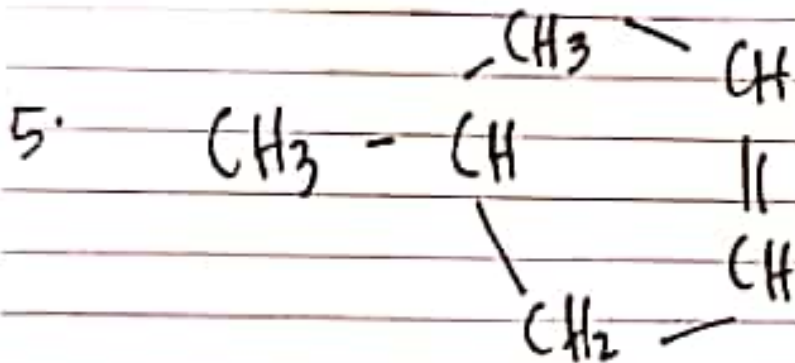 CH3 CH
5. CH3 - CH ||
CH
CH2